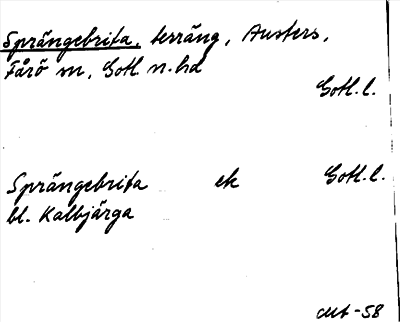 Sprängebrita, terräng, Austers,
Fårö sn, Gotl. n. hd
Gotl. l.
Sprängebrita ek Gotl. l.
bl. Kalbjärga
-58